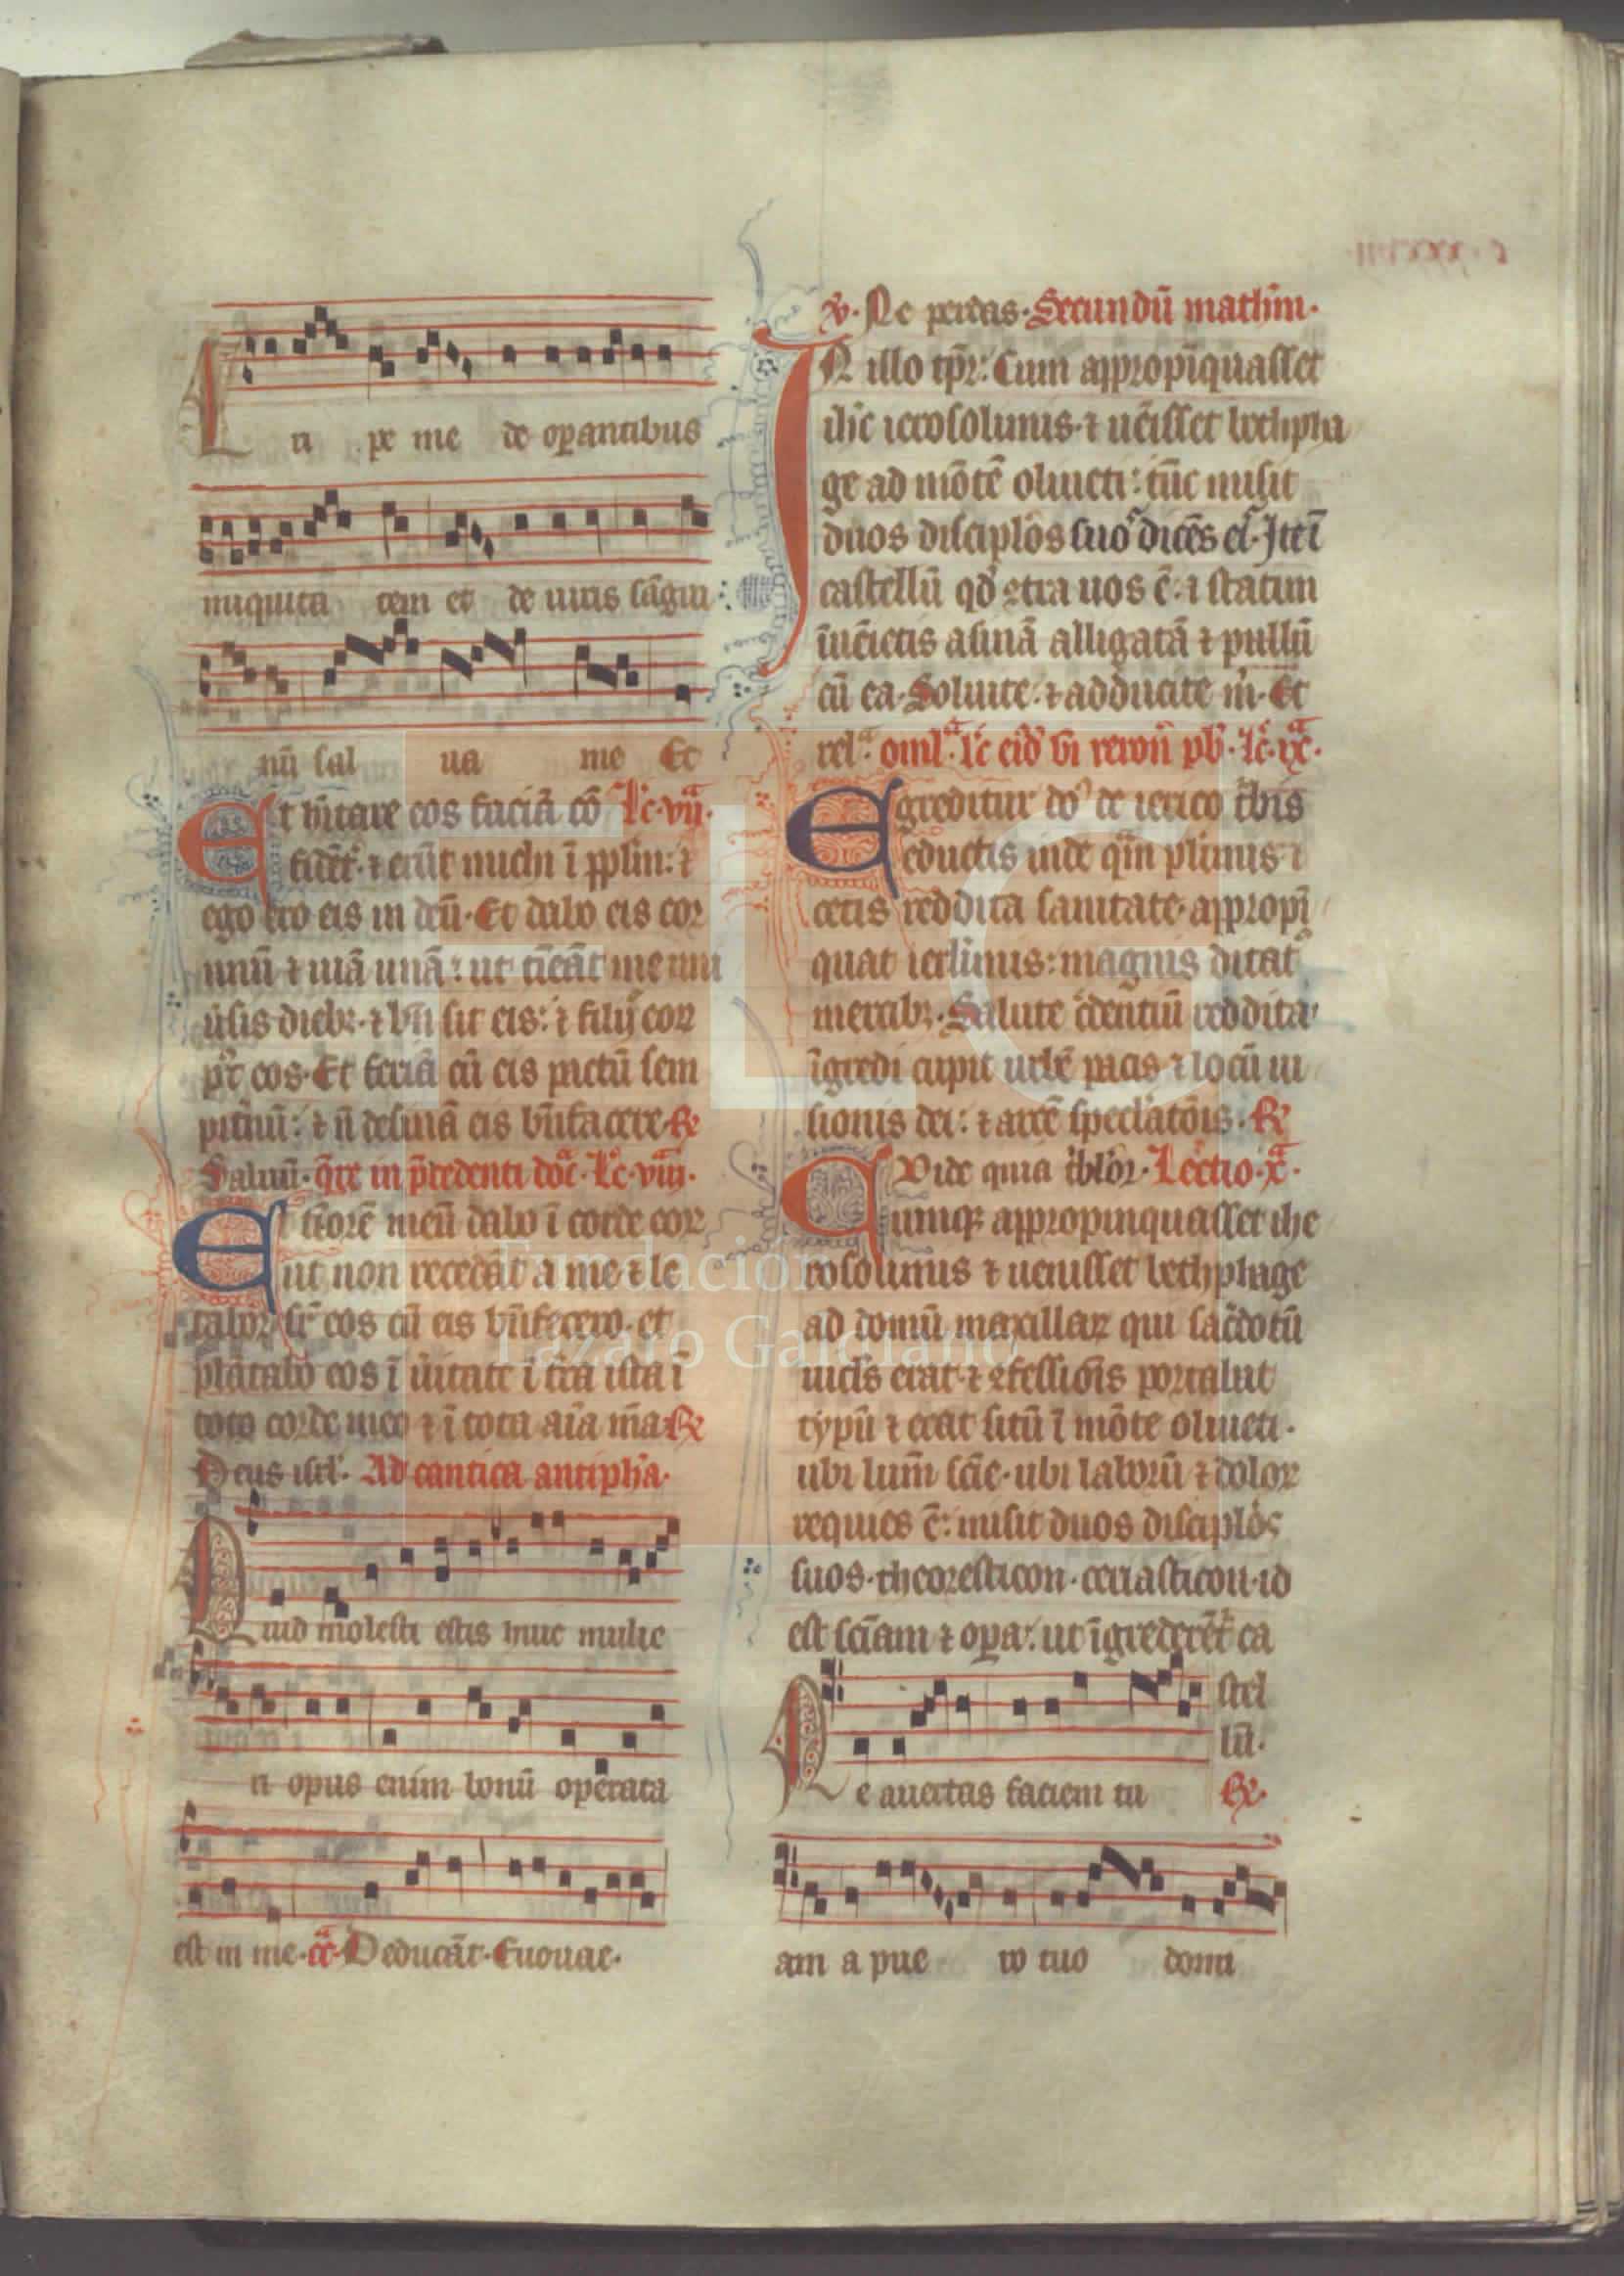 c.xxxviii.
Eri pe me de op̄antibus
iniquita tem et de uiris sāgui
nū sal ua me Et
Et hītare eos faciā cō Lc̄.vii.ª
fidēt̄. ⁊ erūt michi ī pplm̄: ⁊
ego ero eis in deū. Et dabo eis cor
unū ⁊ uiā unā: ut tīeāt me uni
ūsis dieb⁊. ⁊ bn̄ sit eis: ⁊ filiis eor
p̄t eos. Et feriā cū eis pactū sem
pit̄nū: ⁊ n̄ desinā eis bn̄facere. R̄
Saluū. q̄re in p̄cedenti doc̄. Lc̄.viii.ª
Et tīorē meū dabo ī corde eor
ut non recedāt a me ⁊ le
tabor sr̄ eos cū eis bn̄fecero. et
plātabo eos ī ūitate ī tr̄a ista ī
toto corde meo ⁊ ī tota aīa m̄a R̄
Deus isrl̄. Ad cantica antiphā.
Quid molesti estis huic mulie
ri opus enim bonū operata
est in me. cc̄ª Deducāt. Euouae.
v̄. Ne perdas. Secundū mathm̄.
IN illo tp̄r: Cum appropīquasset
ihc̄ ierosolimis. ⁊ uēisset bethpha
ge ad mōtē oliueti: tūc misit
duos disciplōs suoˢ dicēs eiˢ. Ite ī
castellū qd̄ ꝯtra uos ē: ⁊ statim
īuēietis asinā alligatā ⁊ pullū
cū ea. Soluite: ⁊ adducite m̄. Et
rel.ª omlª. lc̄ eid̄ bī ieron̄ pb̄. Lc̄.ix.ª
Egreditur dō de ierico t̄bis
eductis inde q̄m plimis ⁊
cecis reddita sanitate. appropī
quat ierlimis: magnis ditatˢ
mercib⁊. Salute c̄dentiū reddita
īgredi cupit urbē pacis ⁊ locū ui
sionis dei: ⁊ arcē specl̄atōis. R̄
Uide quia t̄blor. Lectio.x.ª
Cumq⁊ appropinquasset ihe
rosolimis ⁊ uenisset bethphage
ad domū maxillar⁊ qui sac̄dotū
uicl̄s erat ⁊ ꝯfessiōis portabat
typū ⁊ erat sitū ī mōte oliueti.
ubi lum̄ scīe. ubi laborū ⁊ dolor⁊
requies ē: misit duos disciplōs
suos. theoresticon. ceriasticon. id
est scīam ⁊ op̄a: ut īgrederēt̄ ca
stel
lū.
Ne auertas faciem tu R̄.
am a pue ro tuo domi
Fundación
Lázaro Galdiano
FLG